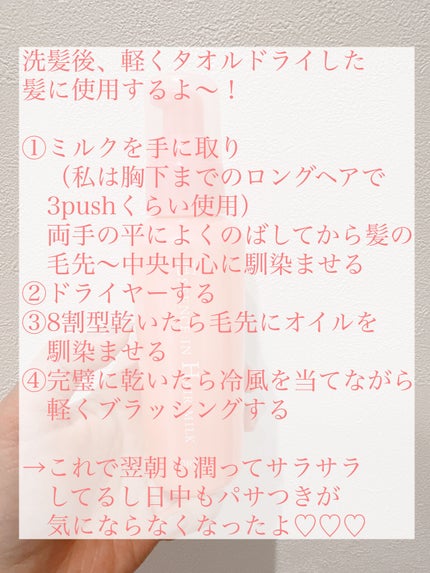 洗髪後、軽くタオルドライした
髪に使用するよ〜！
①ミルクを手に取り
（私は胸下までのロングヘアで
3pushくらい使用）
両手の平によくのばしてから髪の
毛先〜中央中心に馴染ませる
②ドライヤーする
③8割型乾いたら毛先にオイルを
馴染ませる
④完璧に乾いたら冷風を当てながら
軽くブラッシングする
→これで翌朝も潤ってサラサラ
してるし日中もパサつきが
気にならなくなったよ♡♡♡